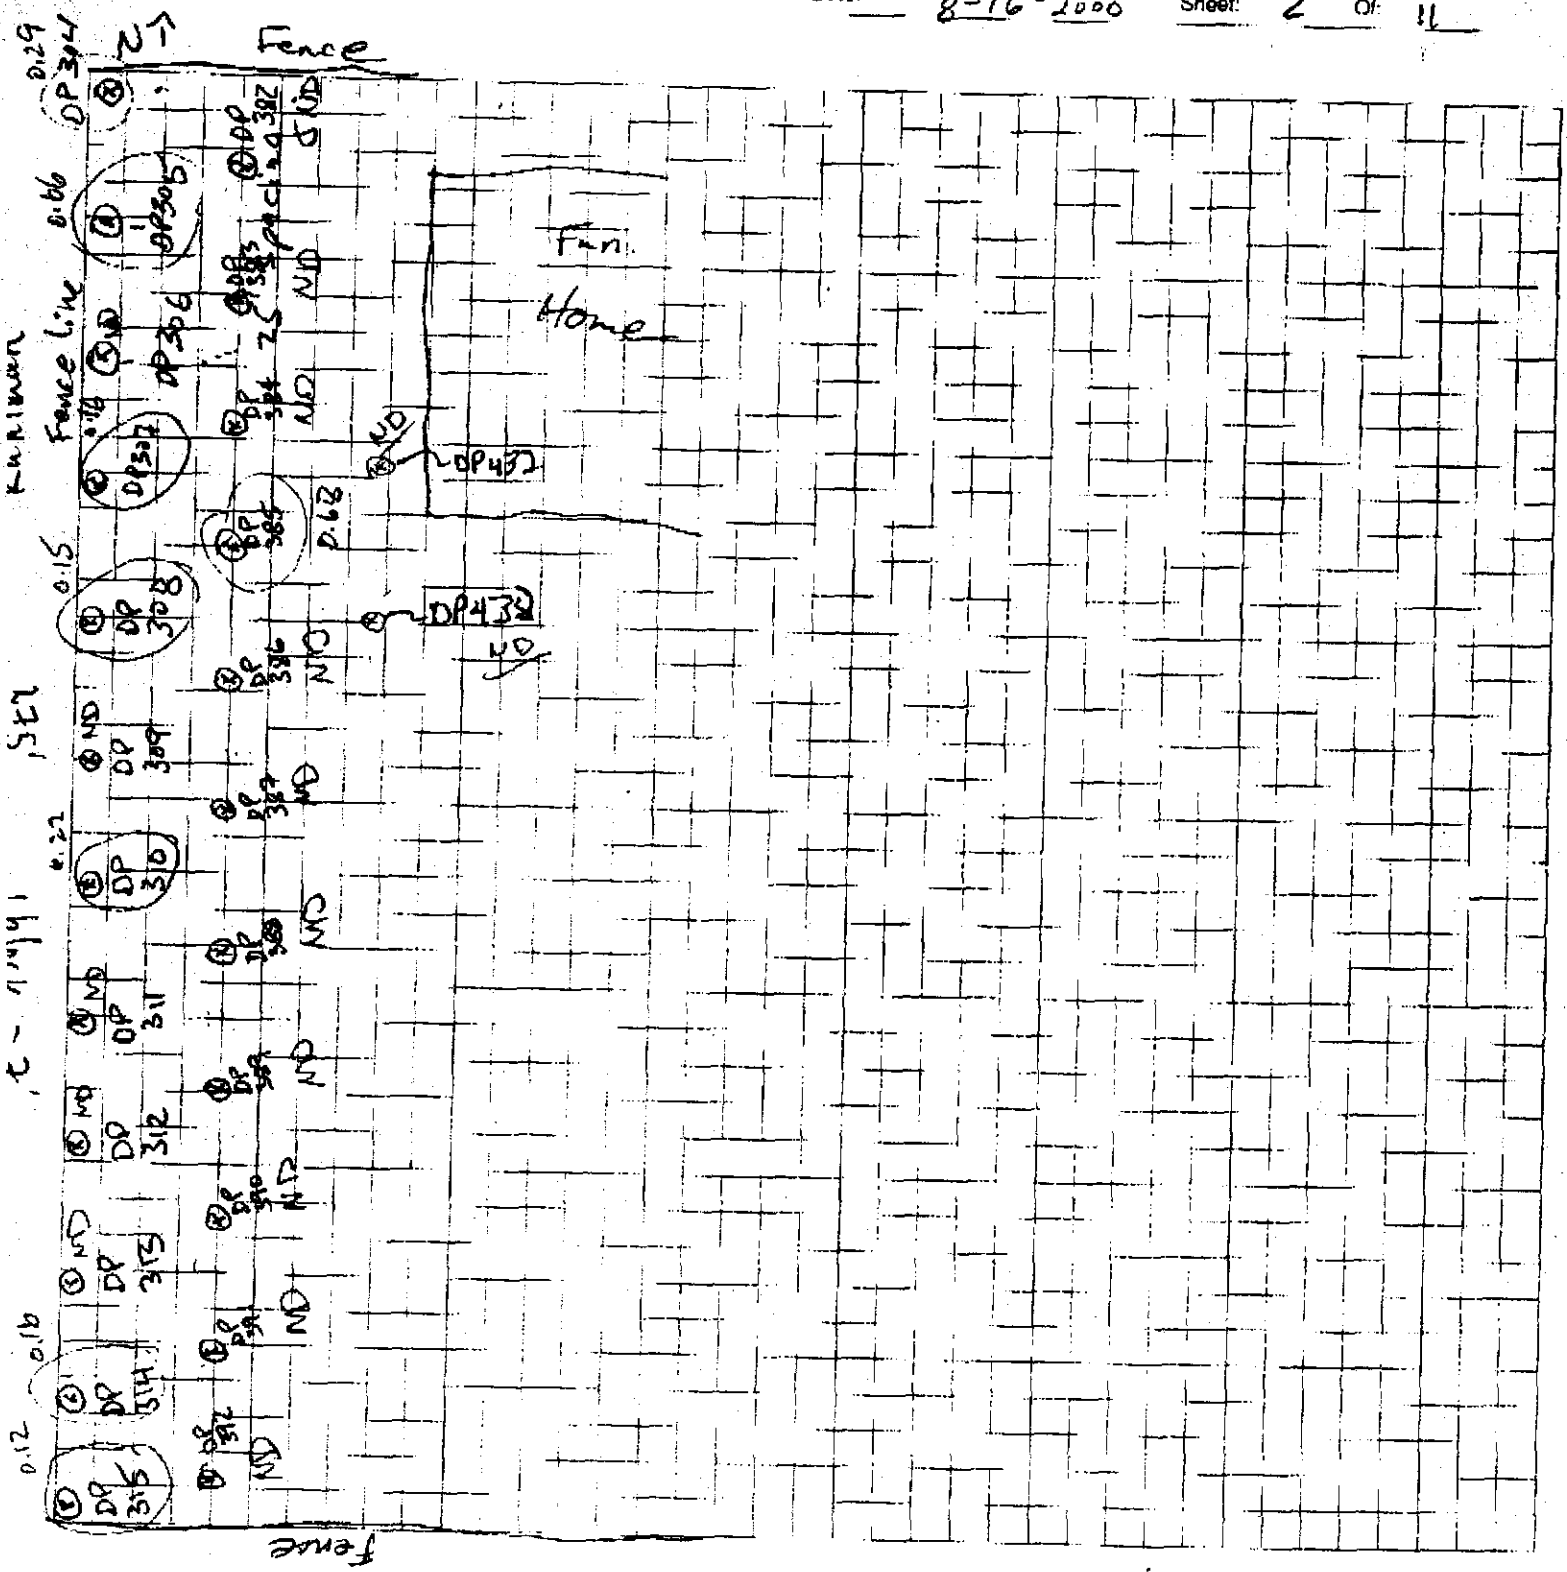 8-16-2000 Sheet: 2 Of: 11
N
Fence
0.29
DP304
0.66
DP305
Fence Line
ND
DP306
0.16
DP307
0.15
DP
308
ND
DP
309
0.22
DP
310
ND
DP
311
ND
DP
312
ND
DP
313
0.16
DP
314
0.12
DP
315
DP
382
ND
25' spacing
DP
383
ND
DP
384
ND
DP
385
0.68
DP
386
ND
DP
387
ND
DP
388
ND
DP
389
ND
DP
390
ND
DP
391
ND
DP
392
ND
ND
DP437
DP438
ND
Fun.
Home
Fence